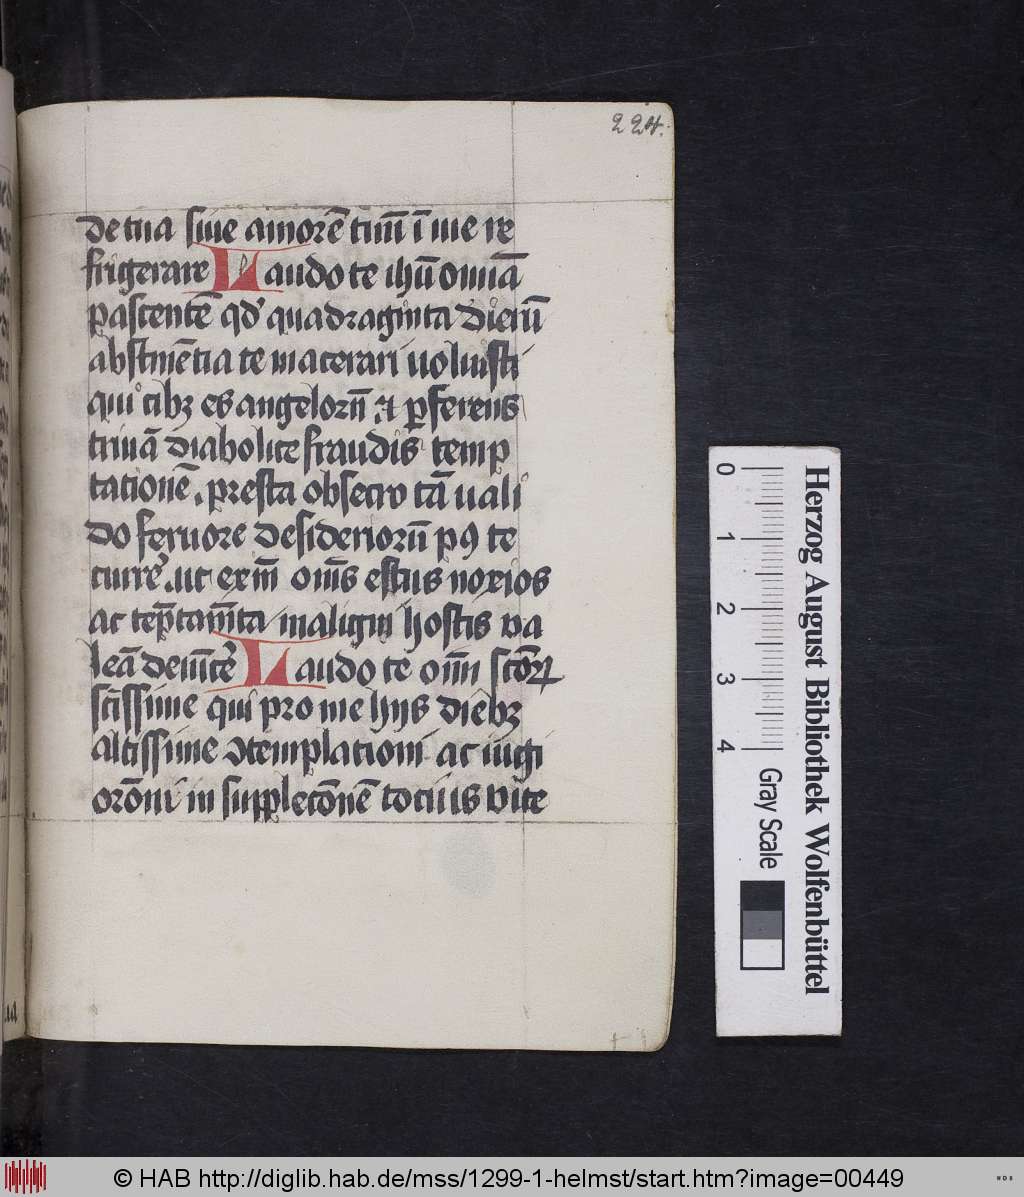 224.
de tua siue amorē tuū ī me re
frigerare Laudo te ihū omīa
pascentē qd' quadraginta dierū
abstinētia te macerari uoluisti
qui cibꝫ es angelorū ⁊ ꝑferens
triuā diabolice fraudis temp
tationē. presta obsecro tā uali
do feruore desideriorū pꝰ te
currē ut exīn om̄s estus noxios
ac tēptam̄ta maligni hostis va
leā deuīcē Laudo te om̄i sc̄orꝝ
sc̄issime qui pro me hijs dieb̄ꝫ
altissime ꝯtemplationi ac iugi
orōni in supplec̄onē tocius vite
Herzog August Bibliothek Wolfenbüttel
0 1 2 3 4
Gray Scale
© HAB http://diglib.hab.de/mss/1299-1-helmst/start.htm?image=00449